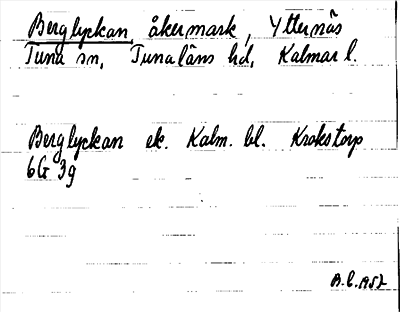 Berglyckan, åkermark, Ytternäs
Tuna sn, Tunaläns hd, Kalmar l.
Berglyckan ek. Kalm. bl. Krokstorp
6G 3g
B.C. 1952